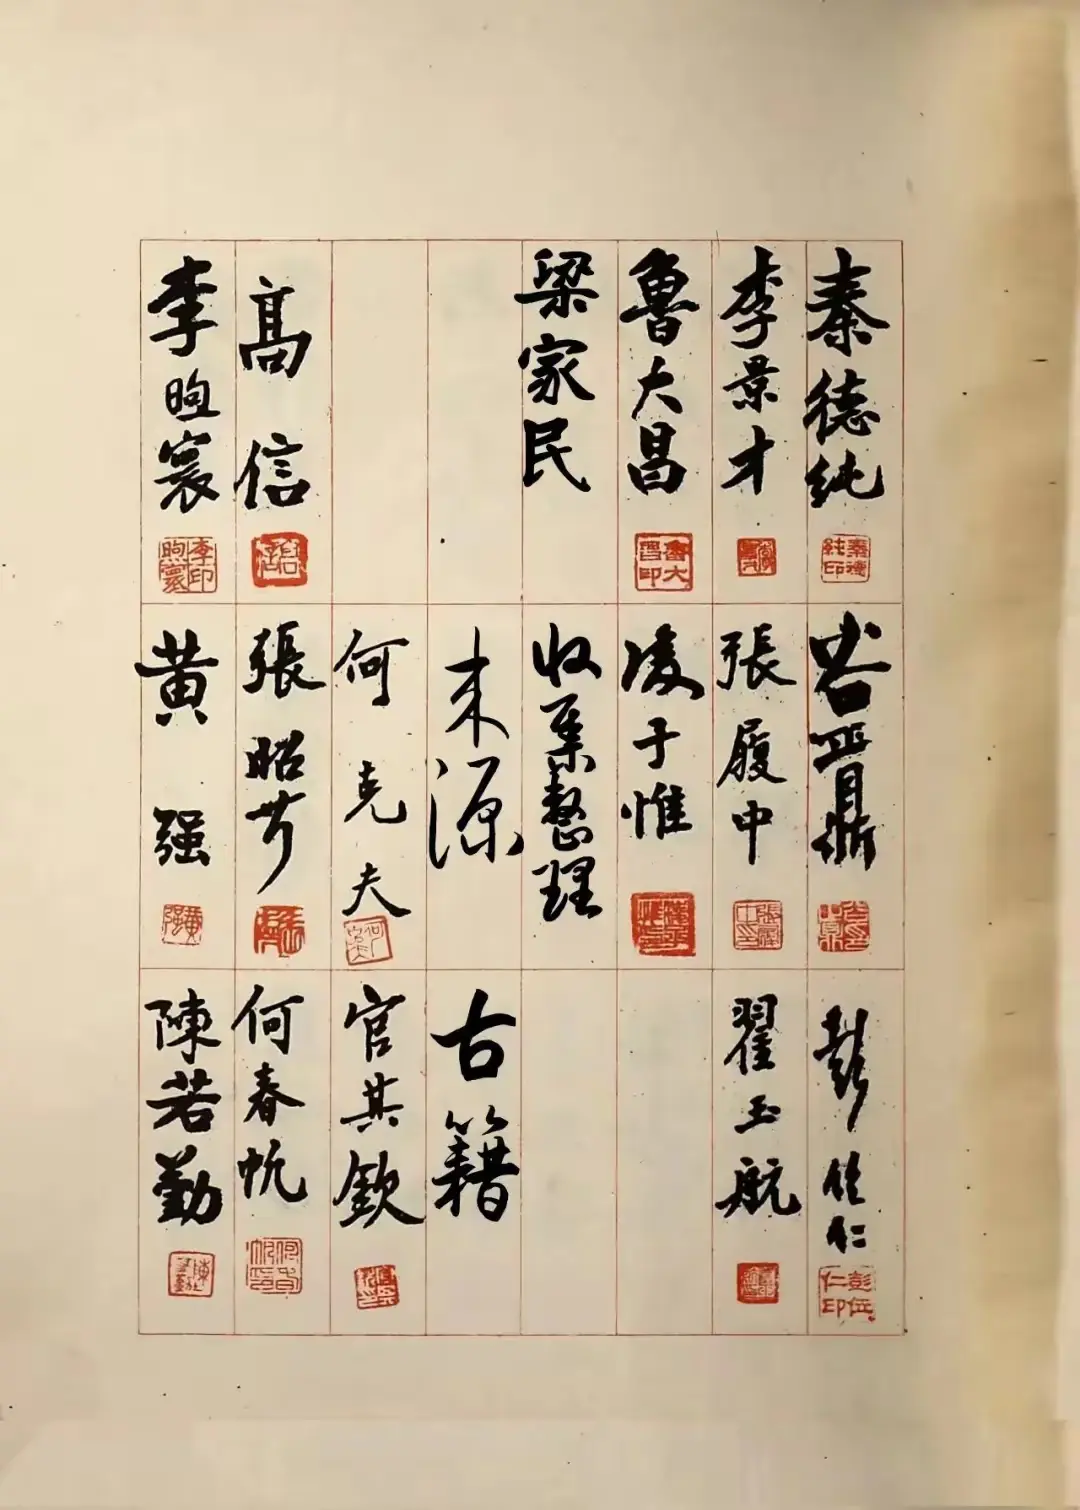 秦德纯
李景才
魯大昌
梁家民
高信
李煦寰
谷鼎
張履中
凌于惟
收集整理
来源
何克夫
張昭芹
黄强
彭位仁
翟玉航
古籍
官其欽
何春帆
陳若勤
秦德純印
魯大昌印
李煦寰印
黄强
彭位仁印